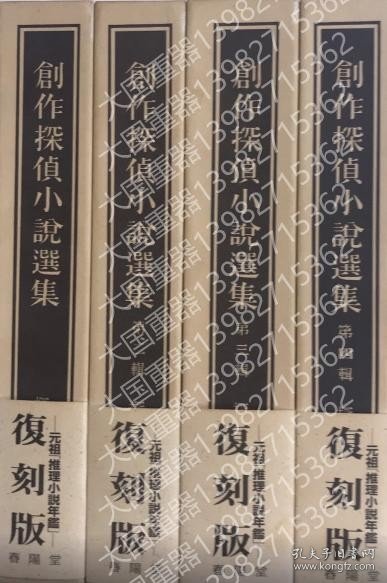 創作探偵小說選集
元祖「推理小説年鑑」
復刻版
春陽堂
創作探偵小說選集
第
輯
元祖「推理小説年鑑」
復刻版
春陽堂
創作探偵小說選集
第三
元祖「推理小説年鑑」
復刻版
春陽堂
創作探偵小說選集
第四輯
元祖「推理小説年鑑」
復刻版
春陽堂
大国重器13982715362
孔夫子旧书网
kongfz.com